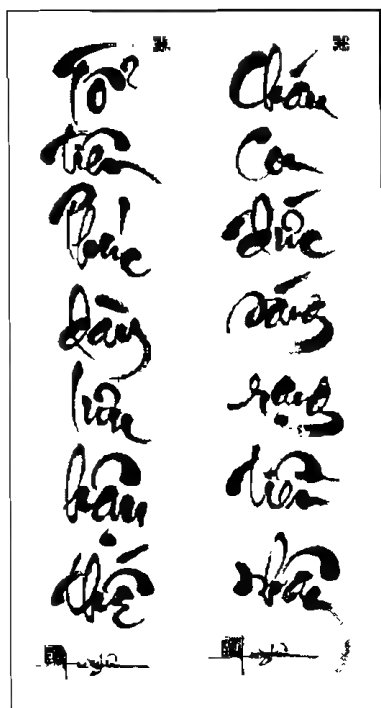 Tổ
tiên
Phúc
lưu
hậu
thế
Cháu
con
đức
sáng
rạng
tiền
nhân